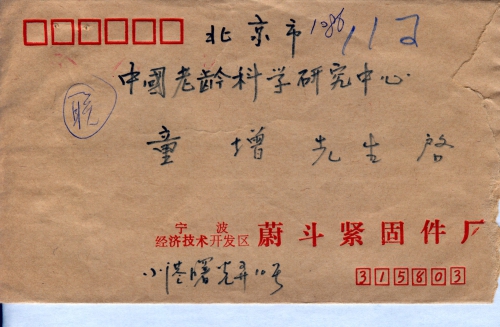 北京市
中國老龄科学研究中心
童增先生啓
宁波
经济技术开发区 蔚斗紧固件厂
小港曙光弄10号
315803